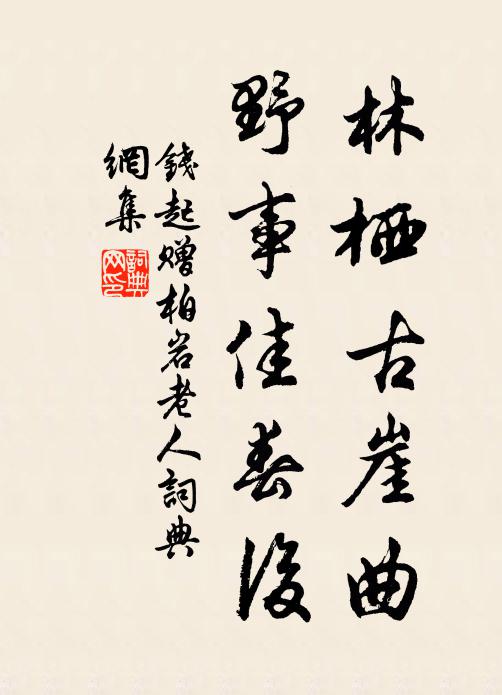 林栖古崖曲
野事佳春後
錢起赠柏岩老人詞典
網集
詞典
网印